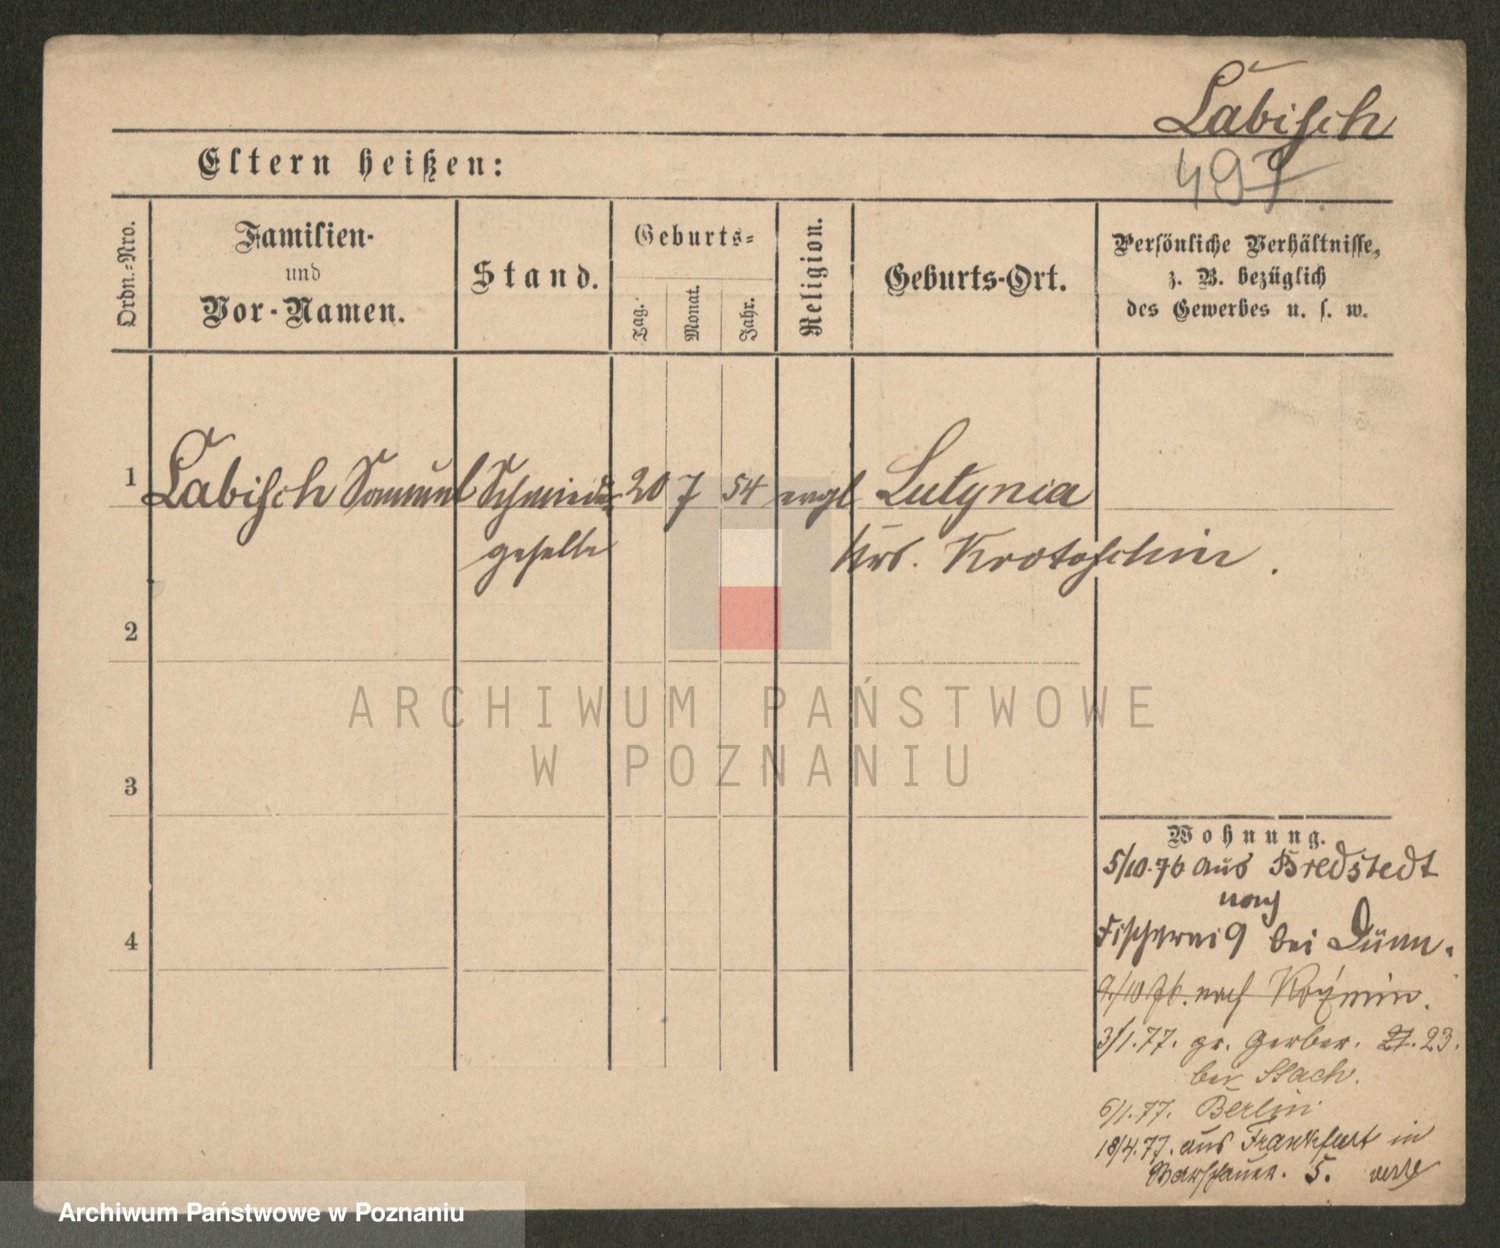 Labisch
497
Eltern heißen:
Ordn.-Nro.
Familien-
und
Vor-Namen.
Stand.
Geburts-
Tag.
Monat.
Jahr.
Religion.
Geburts-Ort.
Persönliche Verhältnisse,
z. B. bezüglich
des Gewerbes u. s. w.
1 Labisch Samuel Schmiede- 20 7 54 evgl Lutynia
geselle Krs. Krotoschin.
2
3
4
Wohnung.
5/10.76 aus Bredstedt
nach
Fischerei 9 bei Dünn.
9/10 76. nach Kozmin.
3/1.77. gr. Gerber. 21. 23.
bei Stach.
6/1.77. Berlin.
18/4.77. aus Frankfurt in
5.
ARCHIWUM PAŃSTWOWE
W POZNANIU
Archiwum Państwowe w Poznaniu